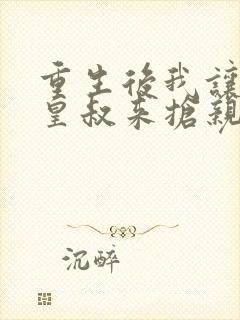 重生後我讓
皇叔來搶親
沉醉